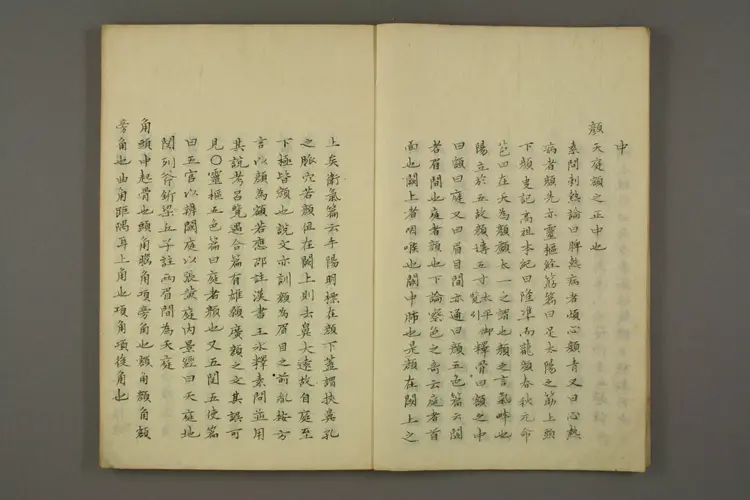 中
顏天庭額之正中也
素問刺熱論曰脾熱病者煩心顏青又曰心熱
病者顏先赤靈樞經筋篇曰足太陽之筋上頭
下顏史記高祖本紀曰隆準而龍顏春秋元命
苞曰在天為顏顏長一之謂也顏之言氣畔也
陽立於五故顏博五寸太平御覽引釋骨曰額之中
曰顏曰庭又曰眉目間亦通曰顏五色篇云闕
者眉間也庭者顏也下論察色之部云庭者首
面也闕上者咽喉也闕中肺也是顏在闕上之
上矣衛氣篇云手陽明標在顏下蓋謂挾鼻孔
之脈穴若顏但在闕上則去鼻大遠故自庭至
下極皆顏也說文亦訓顏為眉目之前亂按方
言以顏為額若應邵註漢書王氷釋素問並用
其說考呂覽遇合篇有雄顙廣顏之文其誤可
見〇靈樞五色篇曰庭者顏也又五閱五使篇
曰五官以辨闕庭以張黃庭內景經曰天庭地
關列斧斤梁丘子註兩眉間為天庭
角頭中起骨也頭角腦角項旁角也額角顏角顏
旁角也曲角距隅耳上角也項角項後角也